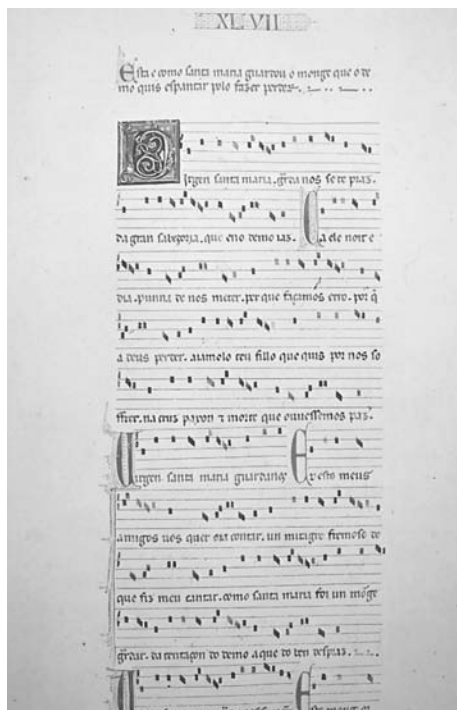 XL VII
Esta e como santa maria guardou o monge que o de
mo quis espantar polo fazer perder.
Virgen santa maria. g̃rda nos se te praz.
da gran sabedoria. que eno demo iaz. Ca ele noit e
dia. punna de nos meter. per que façamos erro. por q̃
a deus perder. aiamolo teu fillo que quis por nos so
ffrer. na cruz paxon ⁊ morte que ouuessemos paz.
Uirgen santa maria guardanos E desto meus
amigos uos quer ora contar. un miragre fremoso de
que fix meu cantar. como santa maria foi un mõge
g̃rdar. da tentaçon do demo a que do ben despraz.